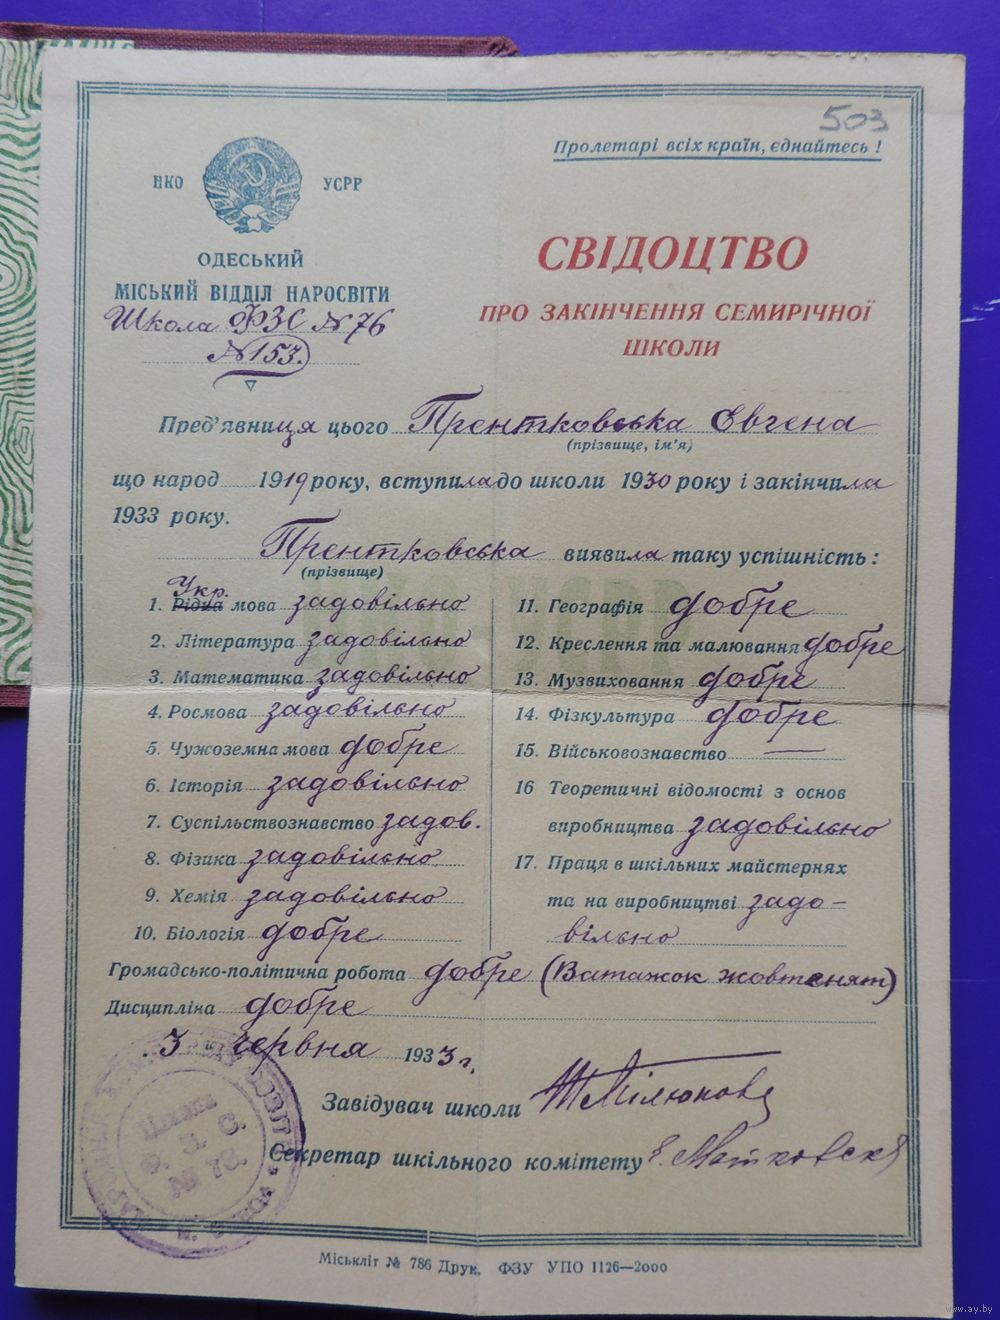 503
Пролетарі всіх країн, єднайтесь !
НКО УСРР
ОДЕСЬКИЙ
МІСЬКИЙ ВІДДІЛ НАРОСВІТИ
Школа ФЗС №76
№153.
СВІДОЦТВО
ПРО ЗАКІНЧЕННЯ СЕМИРІЧНОЇ
ШКОЛИ
Пред'явниця цього Прентковська Євгена
(прізвище, ім'я)
що народ 1919 року, вступила до школи 1930 року і закінчила
1933 року.
Прентковська виявила таку успішність :
(прізвище)
Укр.
1. Рідна мова задовільно
2. Література задовільно
3. Математика задовільно
4. Росмова задовільно
5. Чужоземна мова добре
6. Історія задовільно
7. Суспільствознавство задов.
8. Фізика задовільно
9. Хемія задовільно
10. Біологія добре
11. Географія добре
12. Креслення та малювання добре
13. Музвиховання добре
14. Фізкультура добре
15. Військовознавство —
16 Теоретичні відомості з основ
виробництва задовільно
17. Праця в шкільних майстернях
та на виробництві задо-
вільно
Громадсько-політична робота добре (Ватажок жовтенят)
Дисципліна добре
3 червня 1933 г.
Завідувач школи
Секретар шкільного комітету
Школа
Ф. З. С.
Міськліт № 786 Друк. ФЗУ УПО 1126—2000
www.ay.by